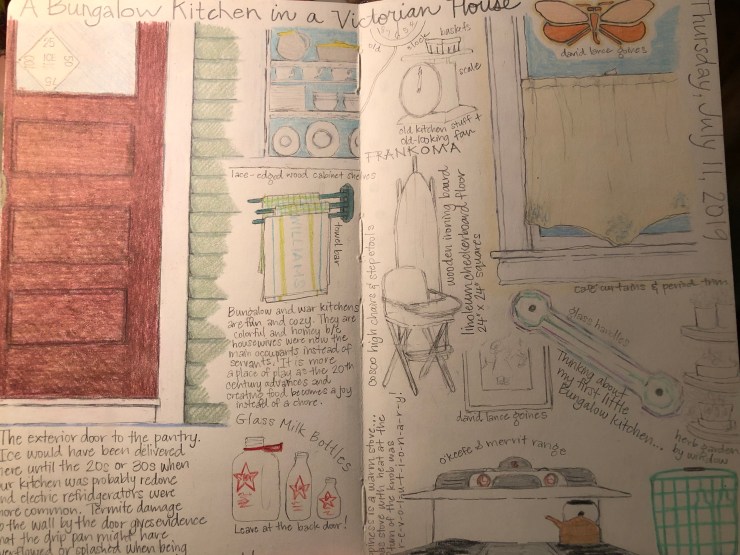 A Bungalow Kitchen in a Victorian House
Thursday, July 11, 2019
25
50
ICE
50
75
lace-edged wood cabinet shelves
towel bar
WILLIAMS
Bungalow and war kitchens
are fun and cozy. They are
colorful and homey b/c
housewives were now the
main occupants instead of
servants. It is more
a place of play as the 20th
century advances and
creating food becomes a joy
instead of a chore.
Glass Milk Bottles
Leave at the back door!
The exterior door to the pantry.
Ice would have been delivered
here until the 20s or 30s when
our kitchen was probably redone
and electric refridgerators were
more common. Termite damage
to the wall by the door gives evidence
that the drip pan might have
overflowed or splashed when being
old
clock
baskets
scale
old kitchen stuff +
old-looking fan
FRANKOMA
cosco high chairs & stepstools
wooden ironing board
linoleum checkerboard floor
24" x 24" squares
david lance goines
david lance goines
cafe curtains & period trim
glass handles
Thinking about
my first little
Bungalow kitchen...
herb garden
by window
o'keefe & merrit range
piness is a warm stove...
stove with heat at the
turn of the knob was
r-e-v-o-l-u-t-i-o-n-a-r-y!